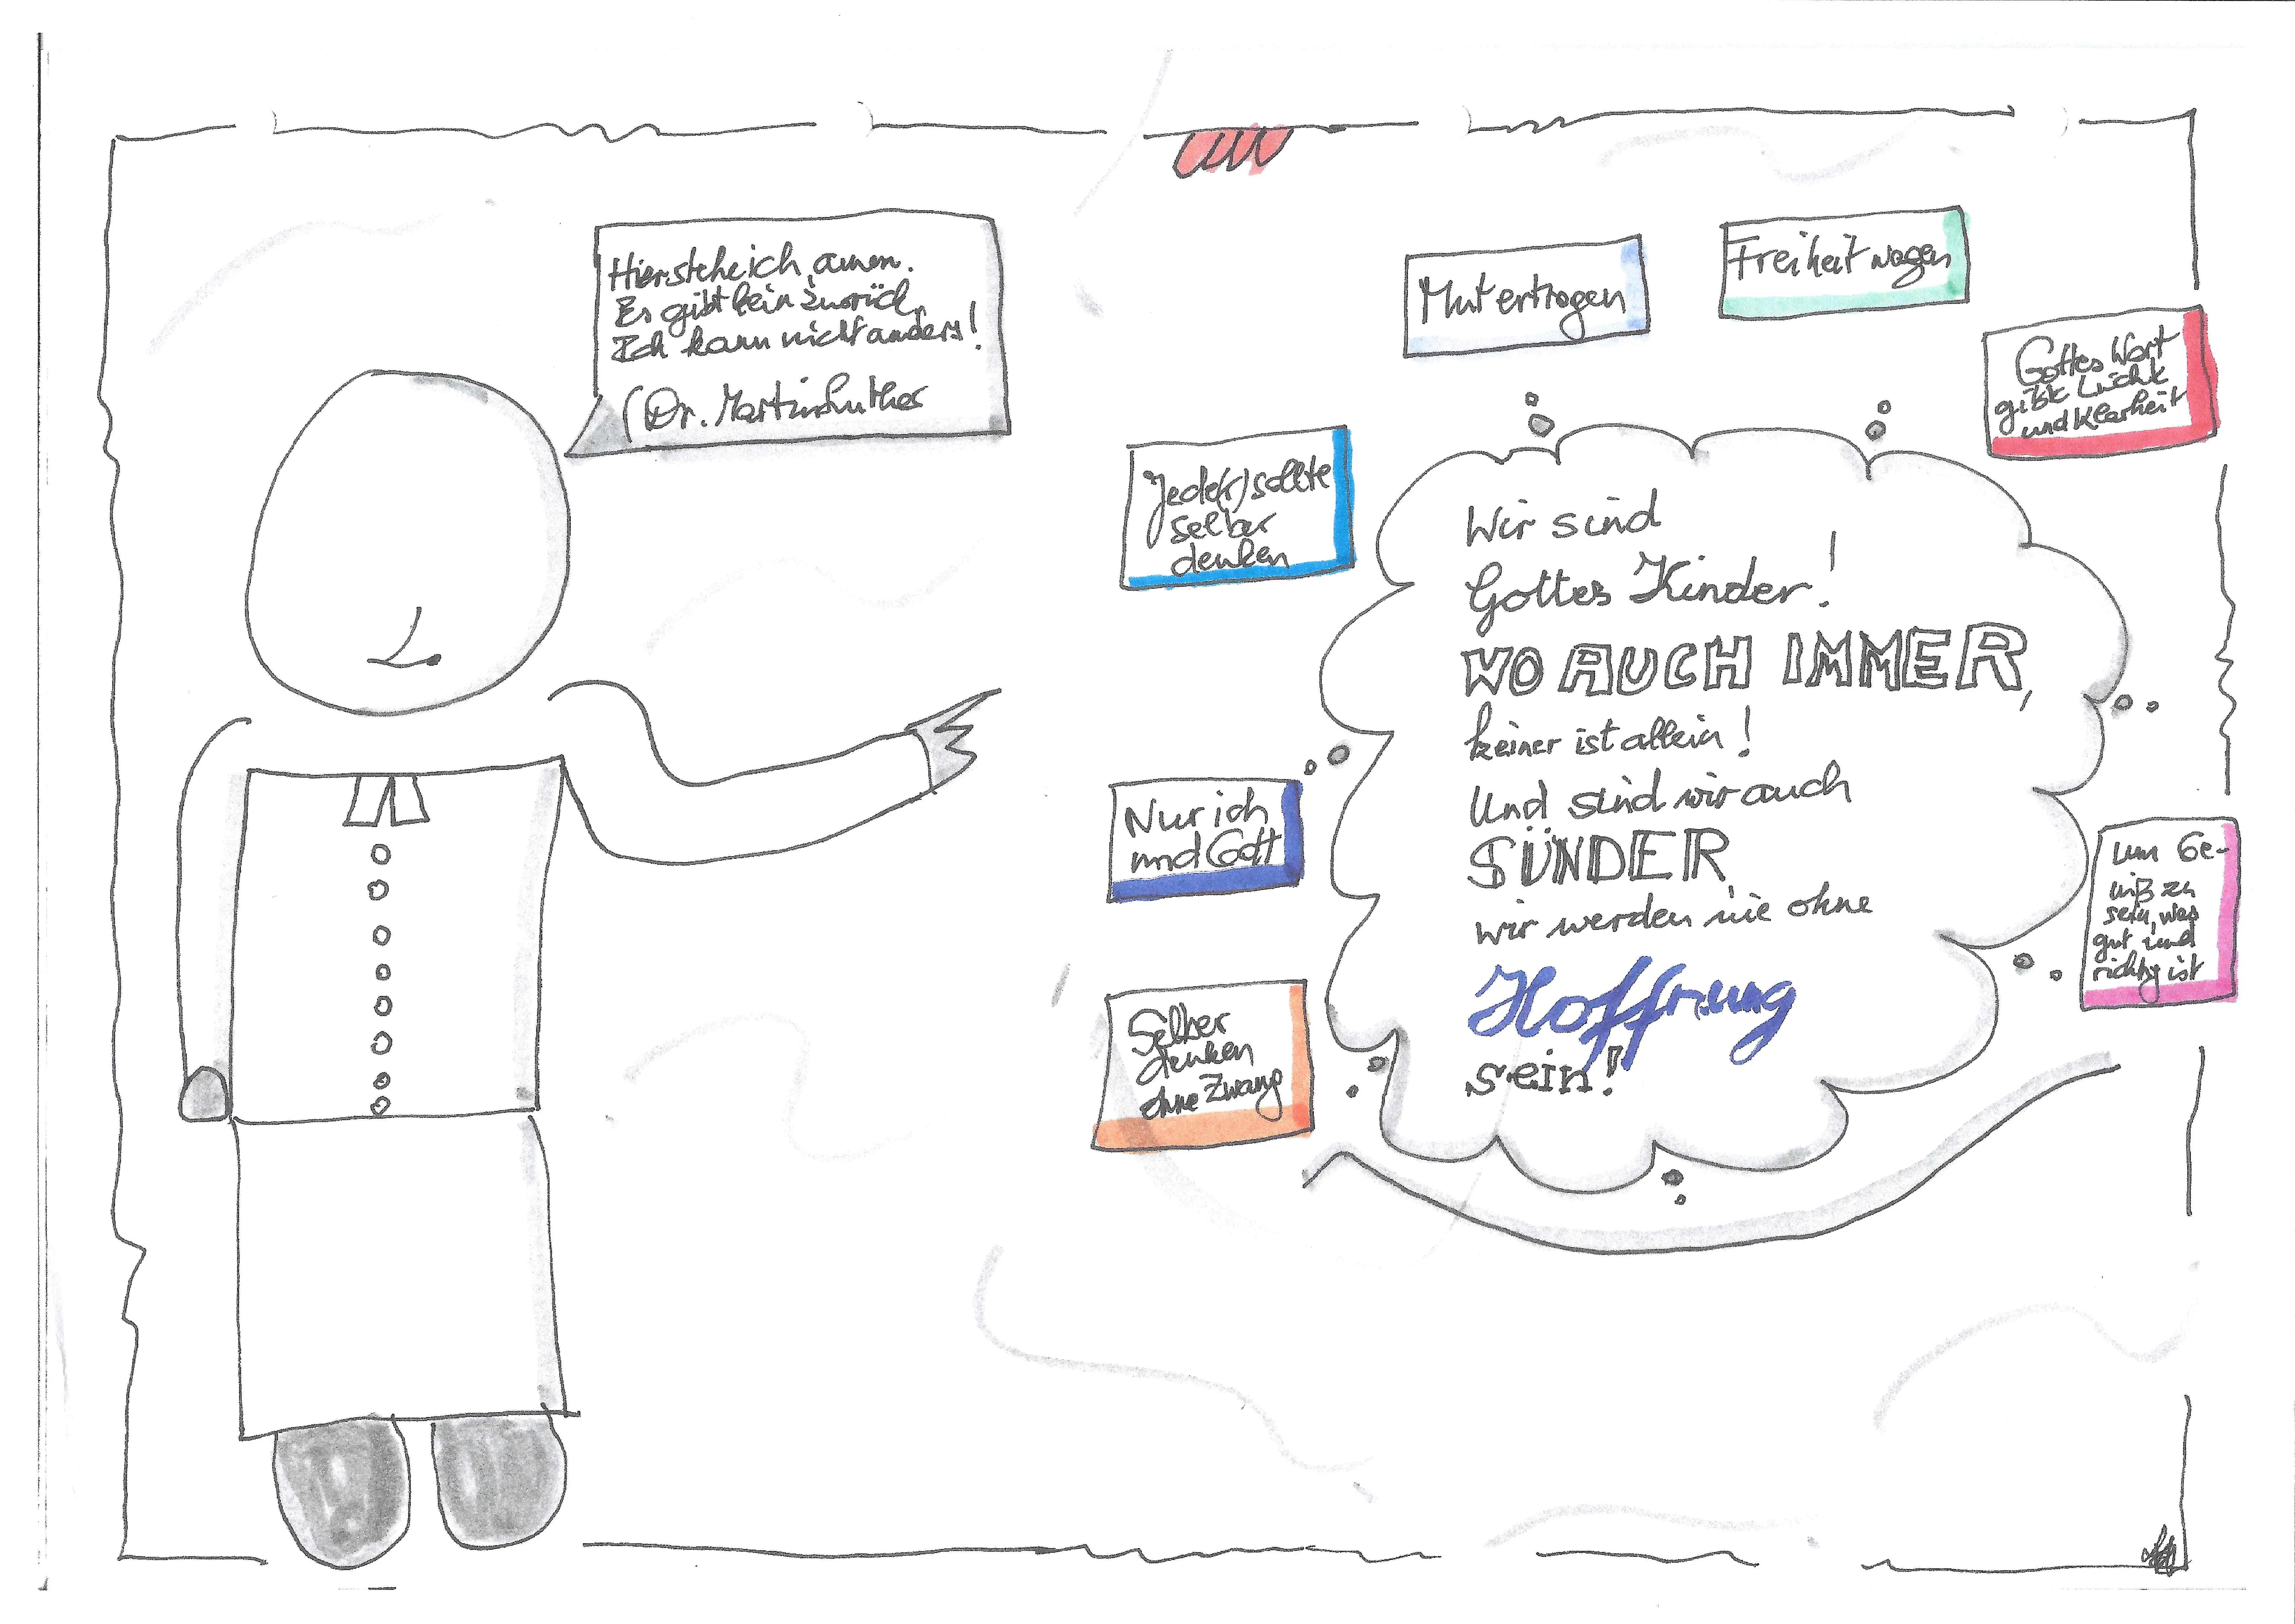 Hier stehe ich, amen.
Es gibt kein zurück,
Ich kann nicht anders!
(Dr. Martin Luther
Mut ertragen
Freiheit wagen
Gottes Wort
gibt Licht
und Klarheit
Jede(r) sollte
selber
denken
Nur ich
und Gott
Selber
denken
ohne Zwang
Wir sind
Gottes Kinder!
WO AUCH IMMER,
keiner ist allein!
Und sind wir auch
SÜNDER,
wir werden nie ohne
Hoffnung
sein!
um Ge-
wiß zu
sein, was
gut und
richtig ist